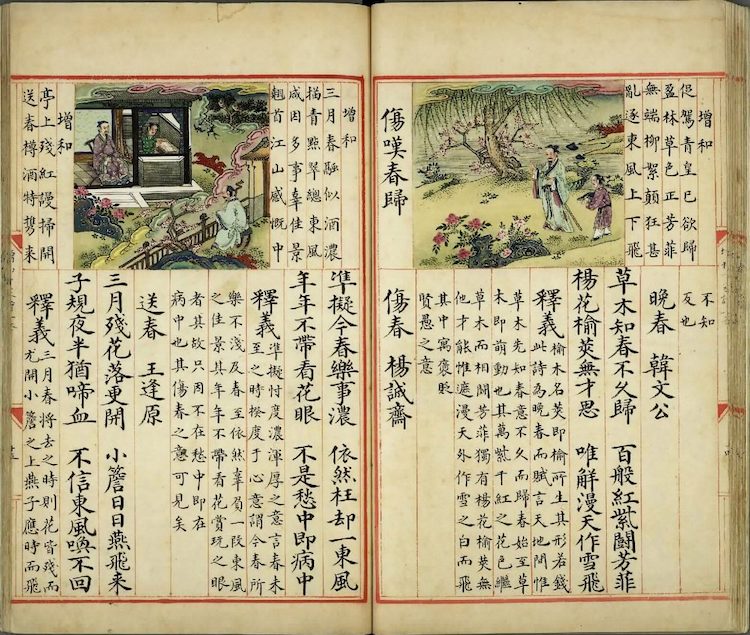 增和
促駕青皇已欲歸
盈林草色正芳菲
無端柳絮顛狂甚
亂逐東風上下飛
傷嘆春歸
不知
反也
晚春 韓文公
草木知春不久歸 百般紅紫闘芳菲
楊花榆莢無才思 唯解漫天作雪飛
釋義 榆木名莢即榆所生其形若錢
此詩為晚春而賦言天地間惟
草木先知春意不久而歸春始至草
木即萌動也其萬紫千紅之花色繼
草木而相闘芳菲獨有楊花榆莢無
他才能惟遮漫天外作雪之白而飛
其中寓褒貶
賢愚之意
傷春 楊誠齋
增和
三月春 似酒濃
描青點翠總東風
咸因多事辜佳景
翹首江山感慨中
增和
亭上殘紅謾掃開
送春樽酒特携來
準擬今春樂事濃 依然枉却一東風
年年不帶看花眼 不是愁中即病中
釋義 準擬忖度濃渾厚之意言春未
至之時揆度于心意謂今春所
樂不淺及春至依然辜負一段東風
之佳景其年年不帶看花賞玩之眼
者其故只因不在愁中即在
病中也其傷春之意可見矣
送春 王逢原
三月殘花落更開 小簷日日燕飛来
子規夜半猶啼血 不信東風喚不回
釋義 三月春將去之時則花皆殘而
尤開小簷之上燕子應時而飛